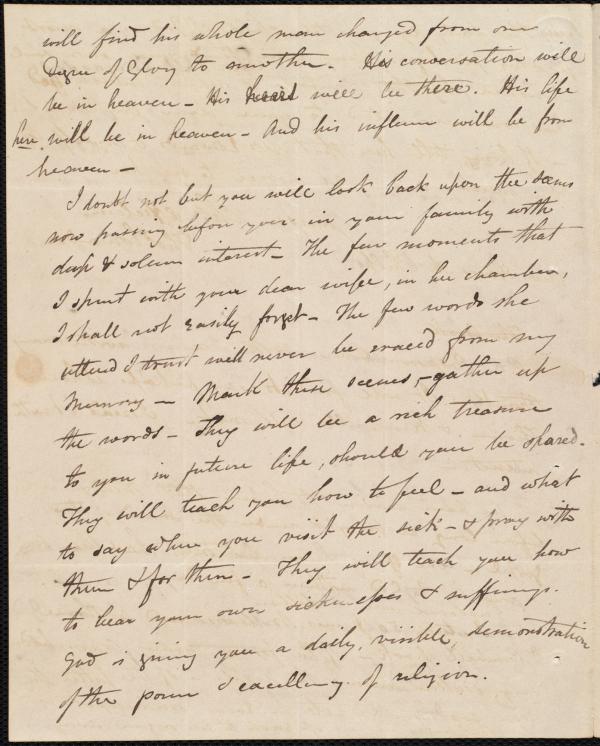 will find his whole man changed from one
degree of Glory to another. His conversation will
be in heaven - His heart will be there. His life
here will be in heaven - And his influence will be from
heaven -
I doubt not but you will look back upon the scenes
now passing before you in your family with
deep & solemn interest - The few moments that
I spent with your dear wife, in her chamber,
I shall not easily forget - The few words she
uttered I trust will never be erased from my
memory - Mark these scenes, - gather up
the words - They will be a rich treasure
to you in future life, should you be spared.
They will teach you how to feel - and what
to say when you visit the sick - & pray with
them & for them - They will teach you how
to bear your own sicknesses & sufferings.
God is giving you a daily, visible, demonstration
of the power & excellency of religion.